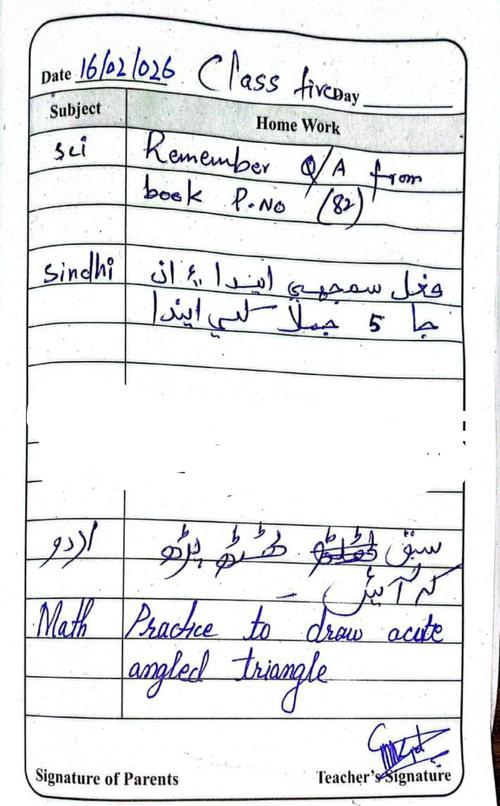 Date 16/02/026 Class five Day
Subject Home Work
Sci Remember Q/A from
book P.No (82)
Sindhi فعل سمجهي ايندا ۽ ان
جا 5 جملا لکي ايندا
اردو سبق ٹھٹھہ پڑھ
کر آئیں -
Math Practice to draw acute
angled triangle
Signature of Parents Teacher's Signature